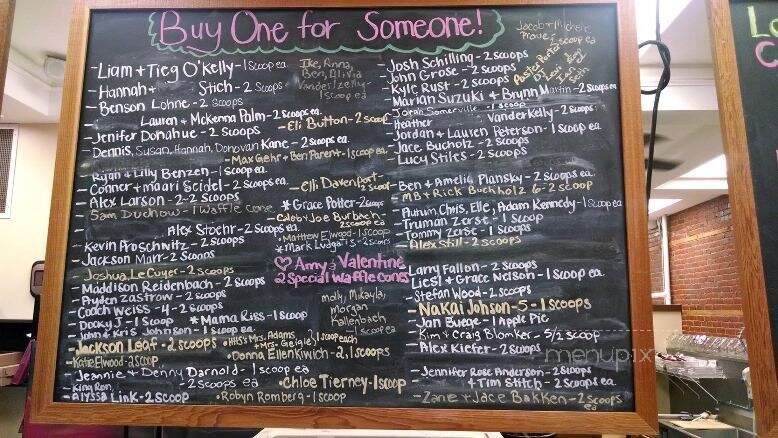 Buy One for Someone!
- Liam + Tieg O'Kelly - 1 scoop ea
- Hannah + Stich - 2 scoops
- Benson Lohne - 2 scoops
Lauren + McKenna Palm - 2 scoops ea.
- Jenifer Donahue - 2 scoops
- Eli Button - 2 scoops
Dennis, Susan, Hannah, Donovan Kane - 2 scoops ea.
- Max Gehr + Ben Parent - 1 scoop ea
- Ryan + Lilly Benzen - 1 scoop ea
- Connor + Maari Seidel - 2 scoops ea
- Elli Davenport - 2 scoop
- Alex Larson - 2 - 2 scoops
* Grace Potter - 2 scoops
- Sam Duchow - 1 waffle cone
- Caleb + Joe Burbach - 2 scoops ea
- Alex Stoehr - 2 scoops ea
- Matthew Elwood - 1 scoop
- Kevin Proschwitz - 2 scoops
* Mark Ludgatis - 2 scoops
- Jackson Marr - 2 scoops
Joshua LeCuyer - 2 scoops
♡ Amy + Valentine
2 Special Waffle Cones
- Maddison Reidenbach - 2 scoops
- Pryden Zastrow - 2 scoops
- Coach Weiss - 4 - 2 scoops
- Dooky J - 1 scoop
* Mama Riss - 1 scoop
John + Kris Johnson - 1 scoop
- Jackson Leaf - 2 scoops
• HHS's Mrs. Adams + Mrs. Geigle 1 scoop each
- Katie Elwood - 2 scoop
• Donna Ellenkiwich - 2, 1 scoops
- Jeannie + Denny Darnold - 1 scoop ea
- King Ron - 2 scoops ea
• Chloe Tierney - 1 scoop
- Alyssa Link - 2 scoop
• Robyn Romberg - 1 scoop
Ike, Anna,
Ben, Alivia
Vanderzelly
1 scoop ea
Molly, Mikayla,
Morgan
Kallenbach
1 scoop ea
Jacob + Michele
Prove 1 scoop ea
- Josh Schilling - 2 scoops
- John Grose - 2 scoops
- Kyle Rust - 2 scoops
- Marian Suzuki + Brynn Martin - 2 scoops ea
- Jorah Somerville - 1 scoop
- Heather VanderKelly - 2 scoops
- Jordan + Lauren Peterson - 1 scoop ea
- Jace Bucholz - 2 scoops
- Lucy Stiles - 2 scoops
- Ben + Amelia Plansky - 2 scoops ea
- MB + Rick Buchholz 6 - 2 scoop
- Autum, Chris, Elle, Adam Kennedy - 1 scoop ea
- Truman Zerse - 1 scoop
- Tommy Zerse - 1 scoop
- Alex Still - 2 scoops
- Larry Fallon - 2 scoops
- Liesl + Grace Nelson - 1 scoop ea
- Stefan Wood - 2 scoops
- Nakai Johson - 5 - 1 scoops
- Jan Buege - 1 Apple Pie
- Kim + Craig Blomker - 5/2 scoop
- Alex Kiefer - 2 scoops
- Jennifer Rose Anderson - 2 scoops
+ Tim Stitch - 2 scoops
- Zane + Jace Bakken - 2 scoops ea
menupix